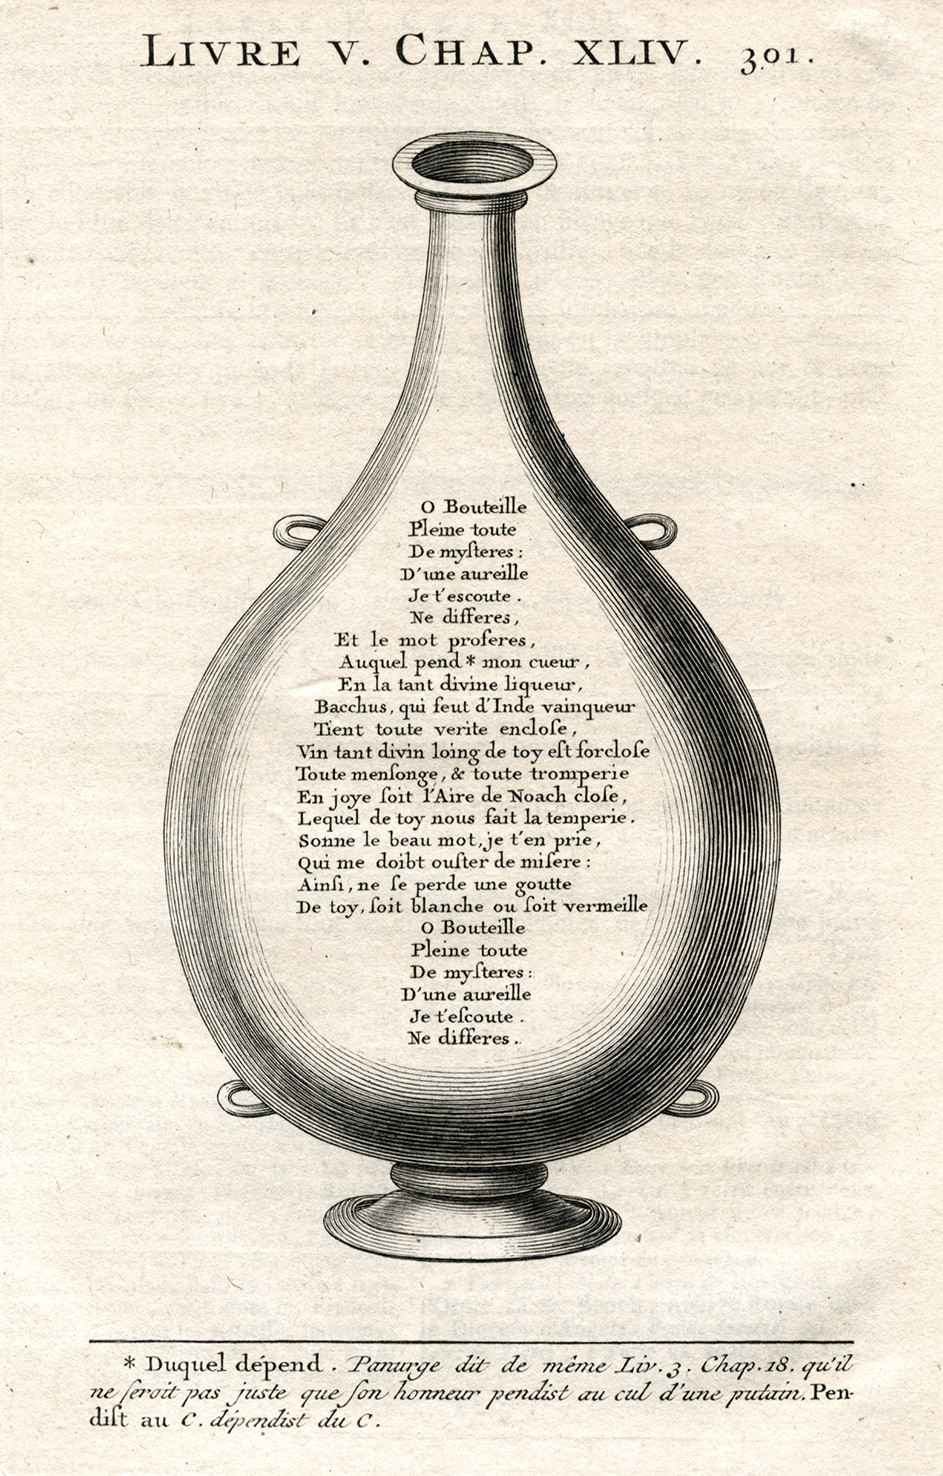 LIVRE V. CHAP. XLIV. 301.
O Bouteille
Pleine toute
De myſteres :
D'une aureille
Je t'escoute .
Ne differes,
Et le mot proferes,
Auquel pend * mon cueur ,
En la tant divine liqueur,
Bacchus, qui feut d'Inde vainqueur
Tient toute verite encloſe,
Vin tant divin loing de toy eſt forcloſe
Toute menſonge, & toute tromperie
En joye ſoit l'Aire de Noach cloſe,
Lequel de toy nous fait la temperie.
Sonne le beau mot, je t'en prie,
Qui me doibt ouſter de miſere :
Ainſi, ne ſe perde une goutte
De toy, ſoit blanche ou ſoit vermeille
O Bouteille
Pleine toute
De myſteres:
D'une aureille
Je t'eſcoute .
Ne differes .
* Duquel dépend . Panurge dit de même Liv. 3. Chap. 18. qu'il
ne ſeroit pas juste que ſon honneur pendist au cul d'une putain. Pen-
diſt au C. dépendist du C.